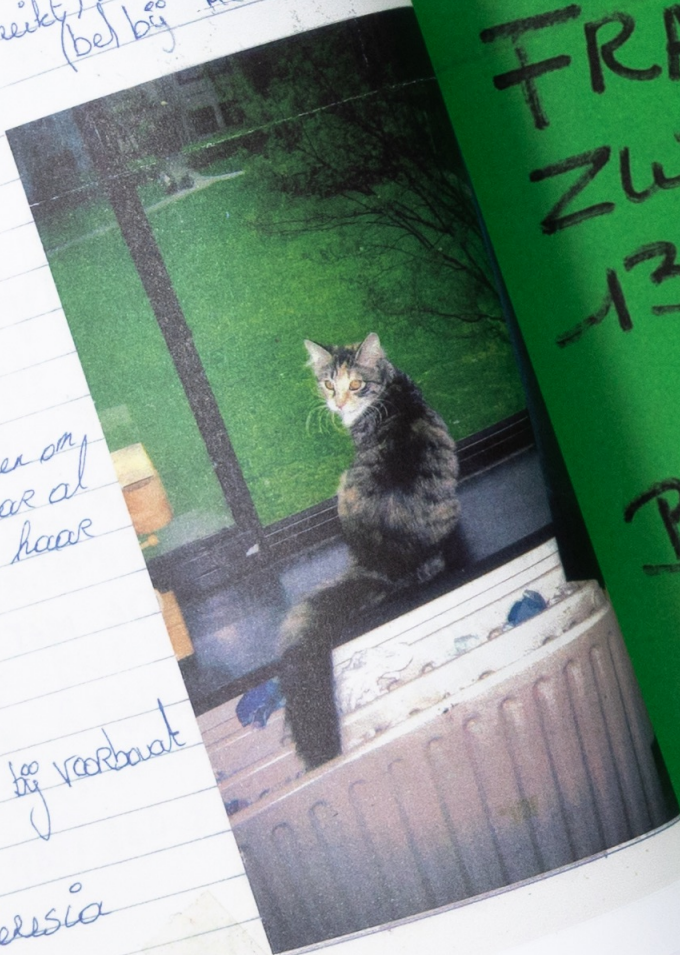 (be) bij
en om
ar al
haar
bij voorbaat
eresia
FRA
ZW
-13
B